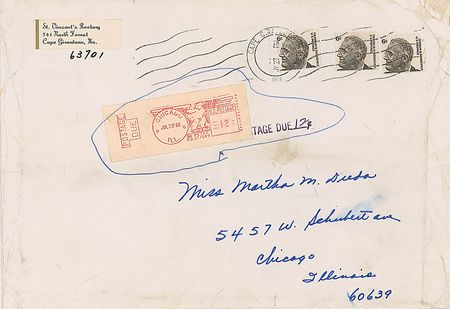 St. Vincent's Rectory
741 North Forest
Cape Girardeau, Mo.
63701
6¢
6¢
6¢
POSTAGE
DUE
CHICAGO
JUL 30 '68
ILL.
12
TAGE DUE 12¢
Miss Martha M. Duda
5457 W. Schubert ave
Chicago
Illinois
60639